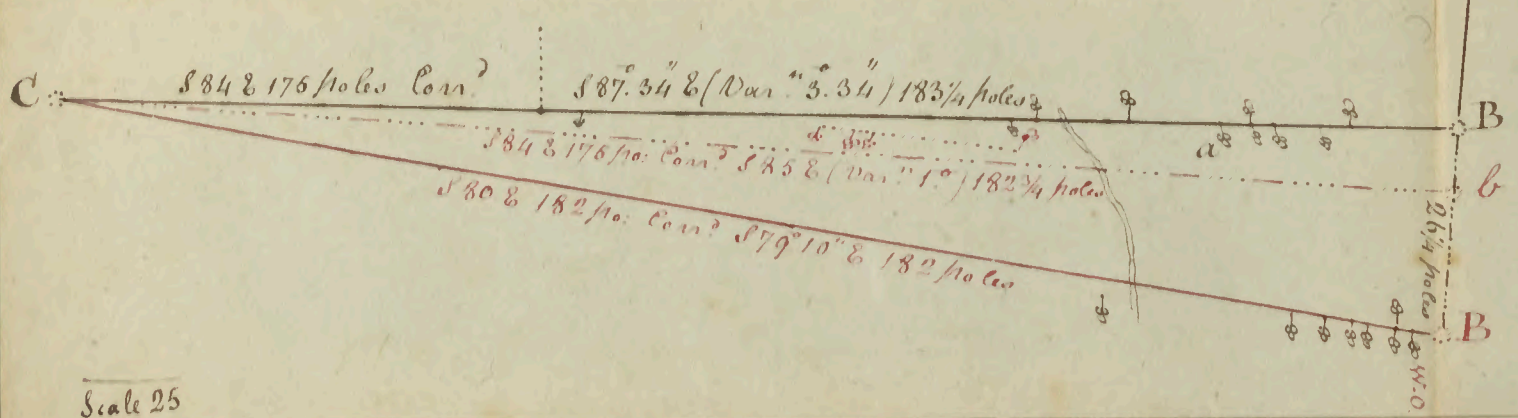 C
S 84 E 176 poles Corr.d
S 87°.34" E (Var.n 3°.34") 183 1/4 poles
B
a
S 84 E 176 po: Corr.d S 85 E (Var.n 1.°) 182 3/4 poles
b
S 80 E 182 po: Corr.d S 79°10" E 182 poles
26 1/4 poles
B
W.O
Scale 25